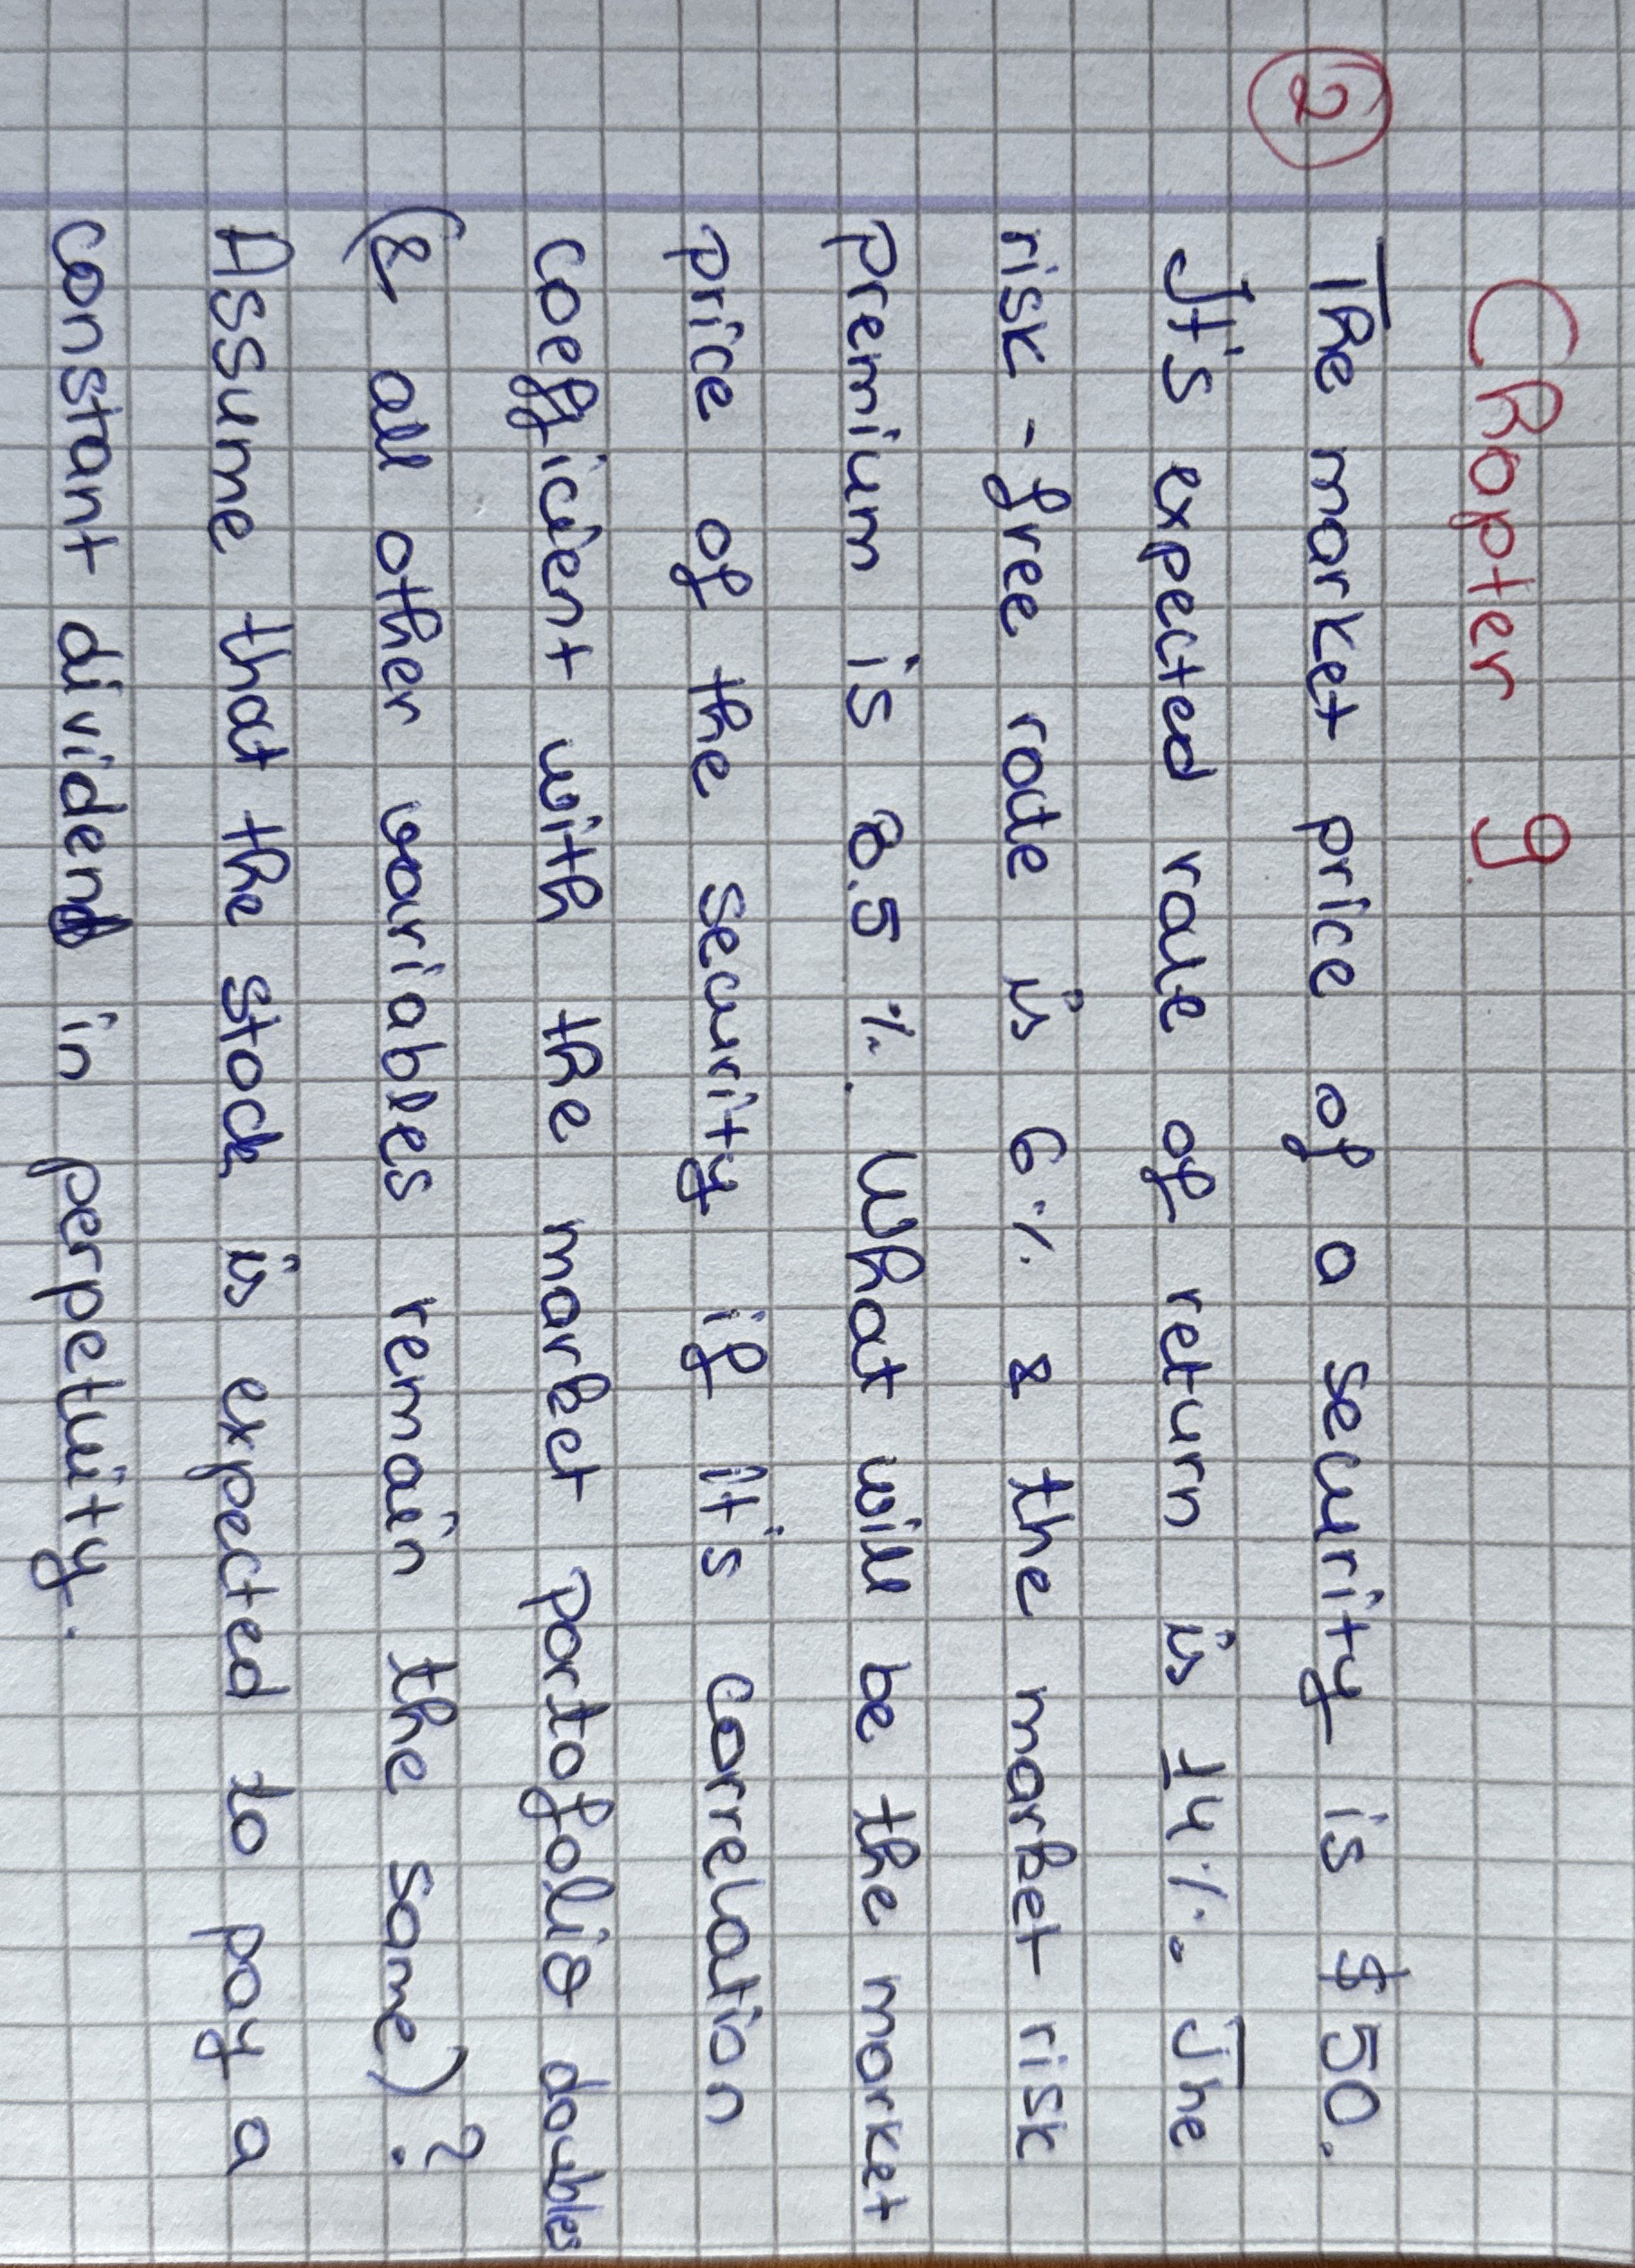 Chapter 9
② The market price of a security is $50.
It's expected rate of return is 14%. The
risk-free rate is 6% & the market risk
premium is 8.5%. What will be the market
price of the security if it's correlation
coefficient with the market portofolio doubles
(& all other variables remain the same)?
Assume that the stock is expected to pay a
constant dividend in perpetuity.